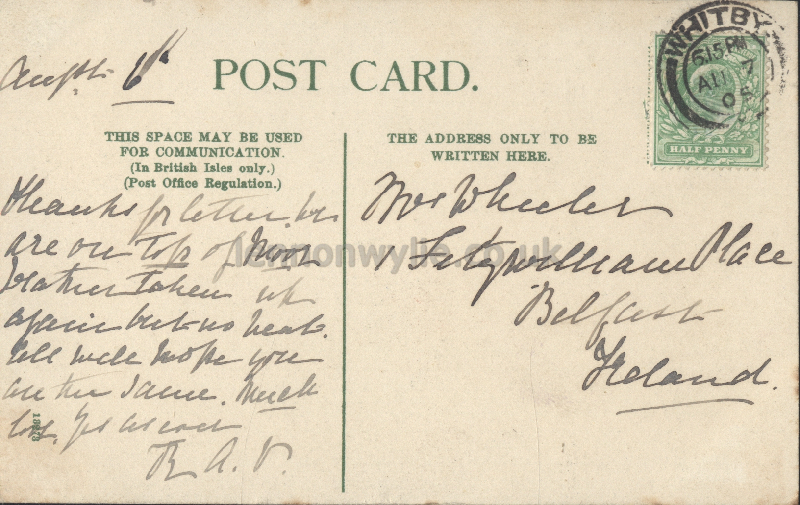 August 6th
POST CARD.
WHITBY
6.15 PM
AU 7
05
HALF PENNY
THIS SPACE MAY BE USED
FOR COMMUNICATION.
(In British Isles only.)
(Post Office Regulation.)
THE ADDRESS ONLY TO BE
WRITTEN HERE.
Thanks for letter. We
are on top of Moor
Weather taken up
again but no heat.
All well hope you
are the same. Much
love,
R.A.V.
Mrs Wheeler
1 Fitzwilliam Place
Belfast
Ireland.
lennonwylie.co.uk